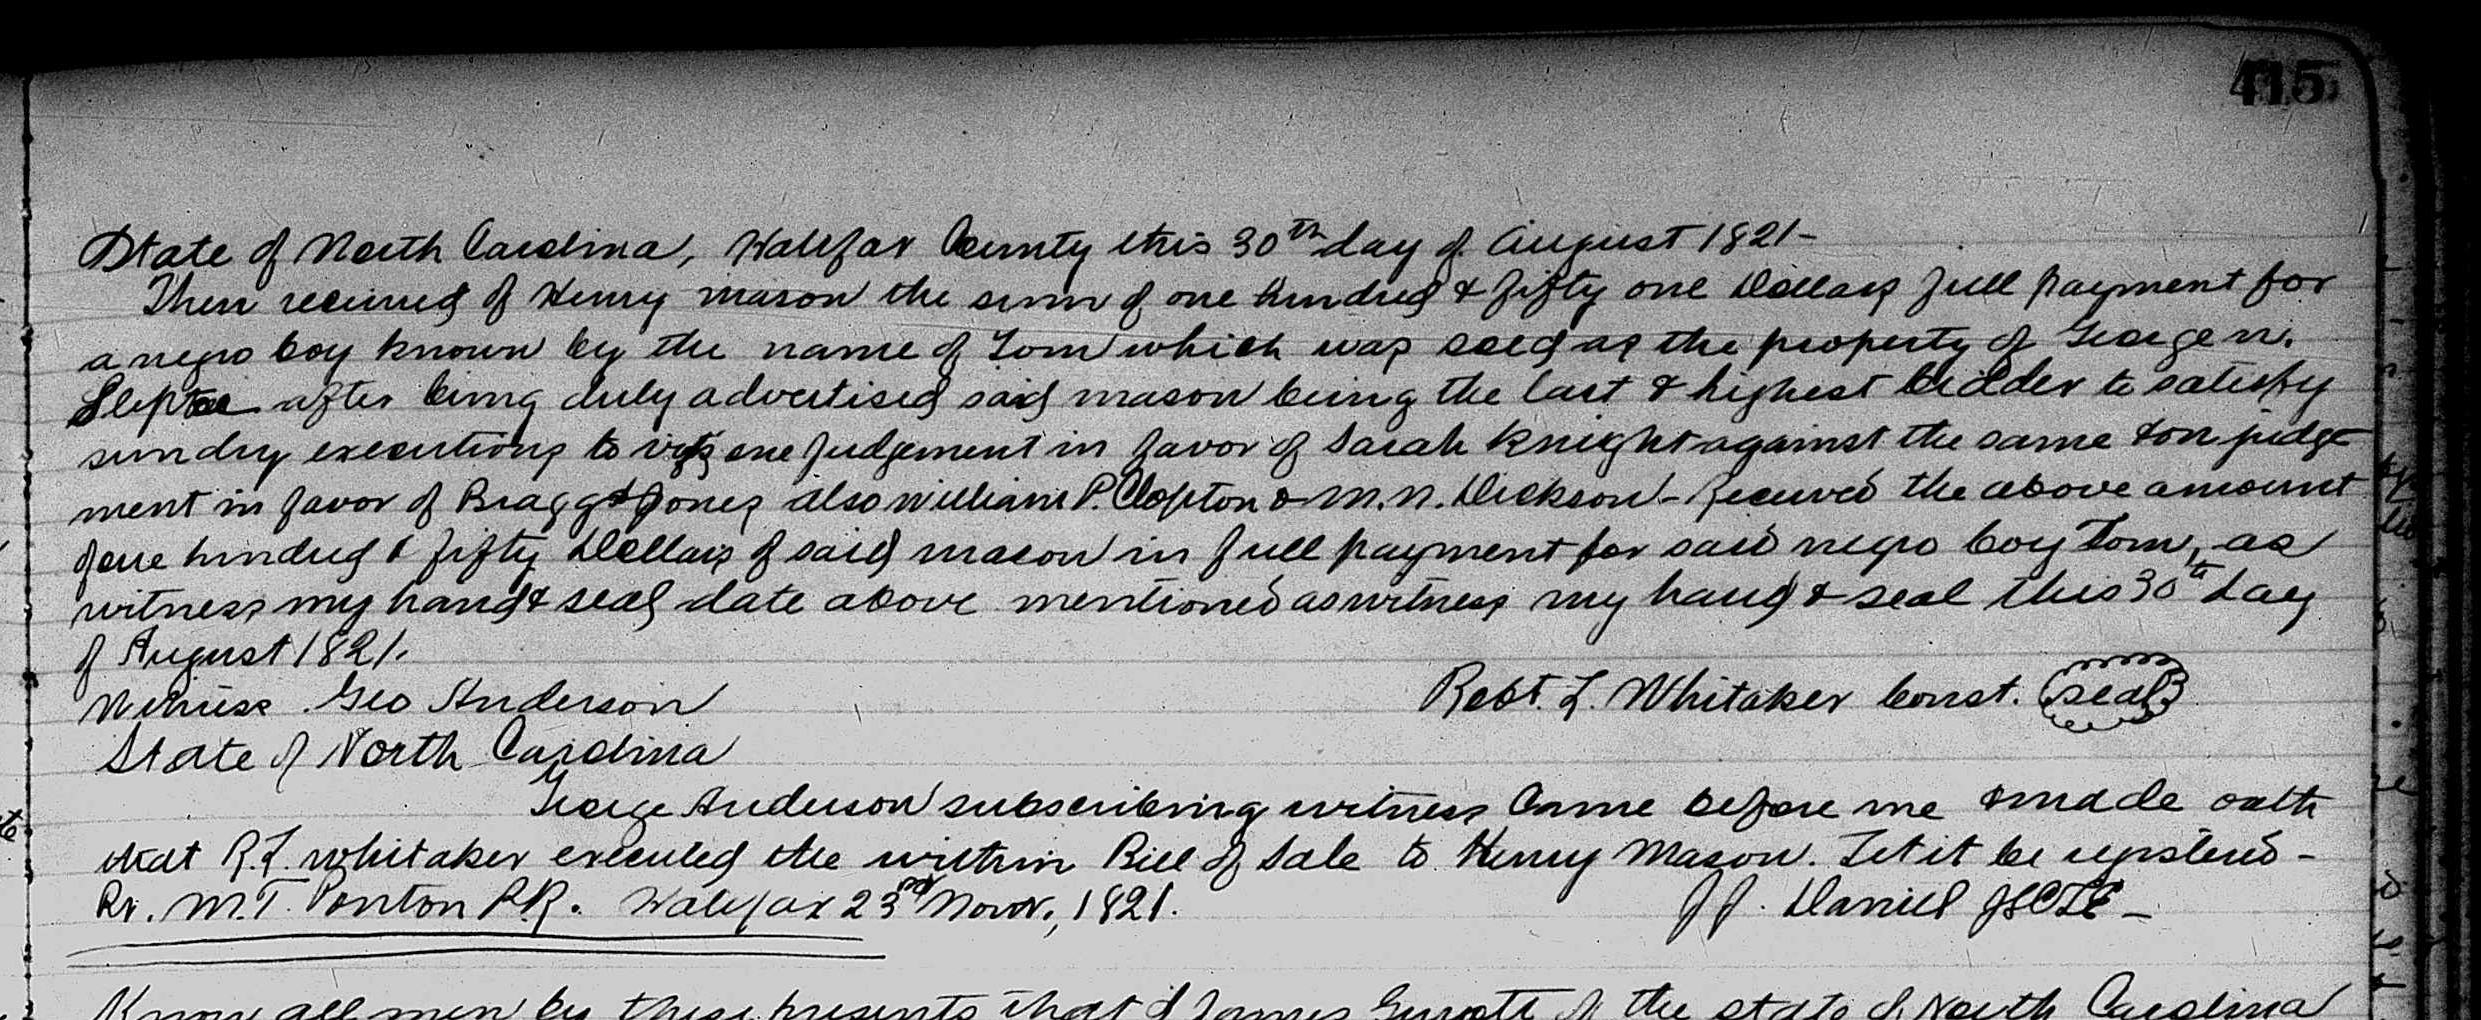 415
State of North Carolina, Halifax County this 30th day of August 1821-
Then received of Henry mason the sum of one hundred & fifty one Dollars full payment for
a negro boy known by the name of Tom which was sold as the property of George N.
after being duly advertised said mason being the last & highest bidder to satisfy
sundry executions to one judgement in favor of Sarah Knight against the same & on judge
ment in favor of Bragg & Jones also William P. Clopton & M.N. Dickson - Received the above amount
of one hundred & fifty Dollars of said mason in full payment for said negro boy Tom, as
witness my hand & seal date above mentioned as witness my hand & seal this 30th day
of August 1821.
Witness Geo Anderson Robt. L. Whitaker Const. seal
State of North Carolina
George Anderson subscribing witness Came before me & made oath
that R.L. Whitaker executed the within Bill of Sale to Henry Mason. Let it be registered -
Rr. M.T. Ponton P.R. Halifax 23rd Novr., 1821. JJ. Daniel
Know all men by these presents that I James of the state of North Carolina